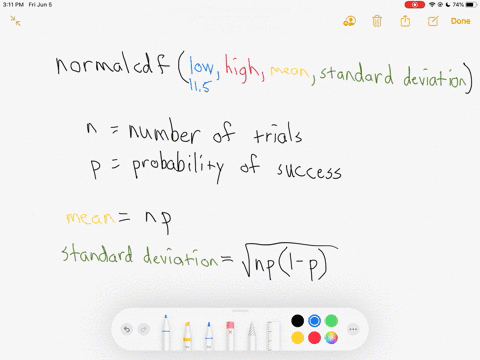 3:11 PM Fri Jun 5
74%
Done
normalcdf (low, high, mean, standard deviation)
11.5
n = number of trials
p = probability of success
mean = np
standard deviation = √np(1-p)